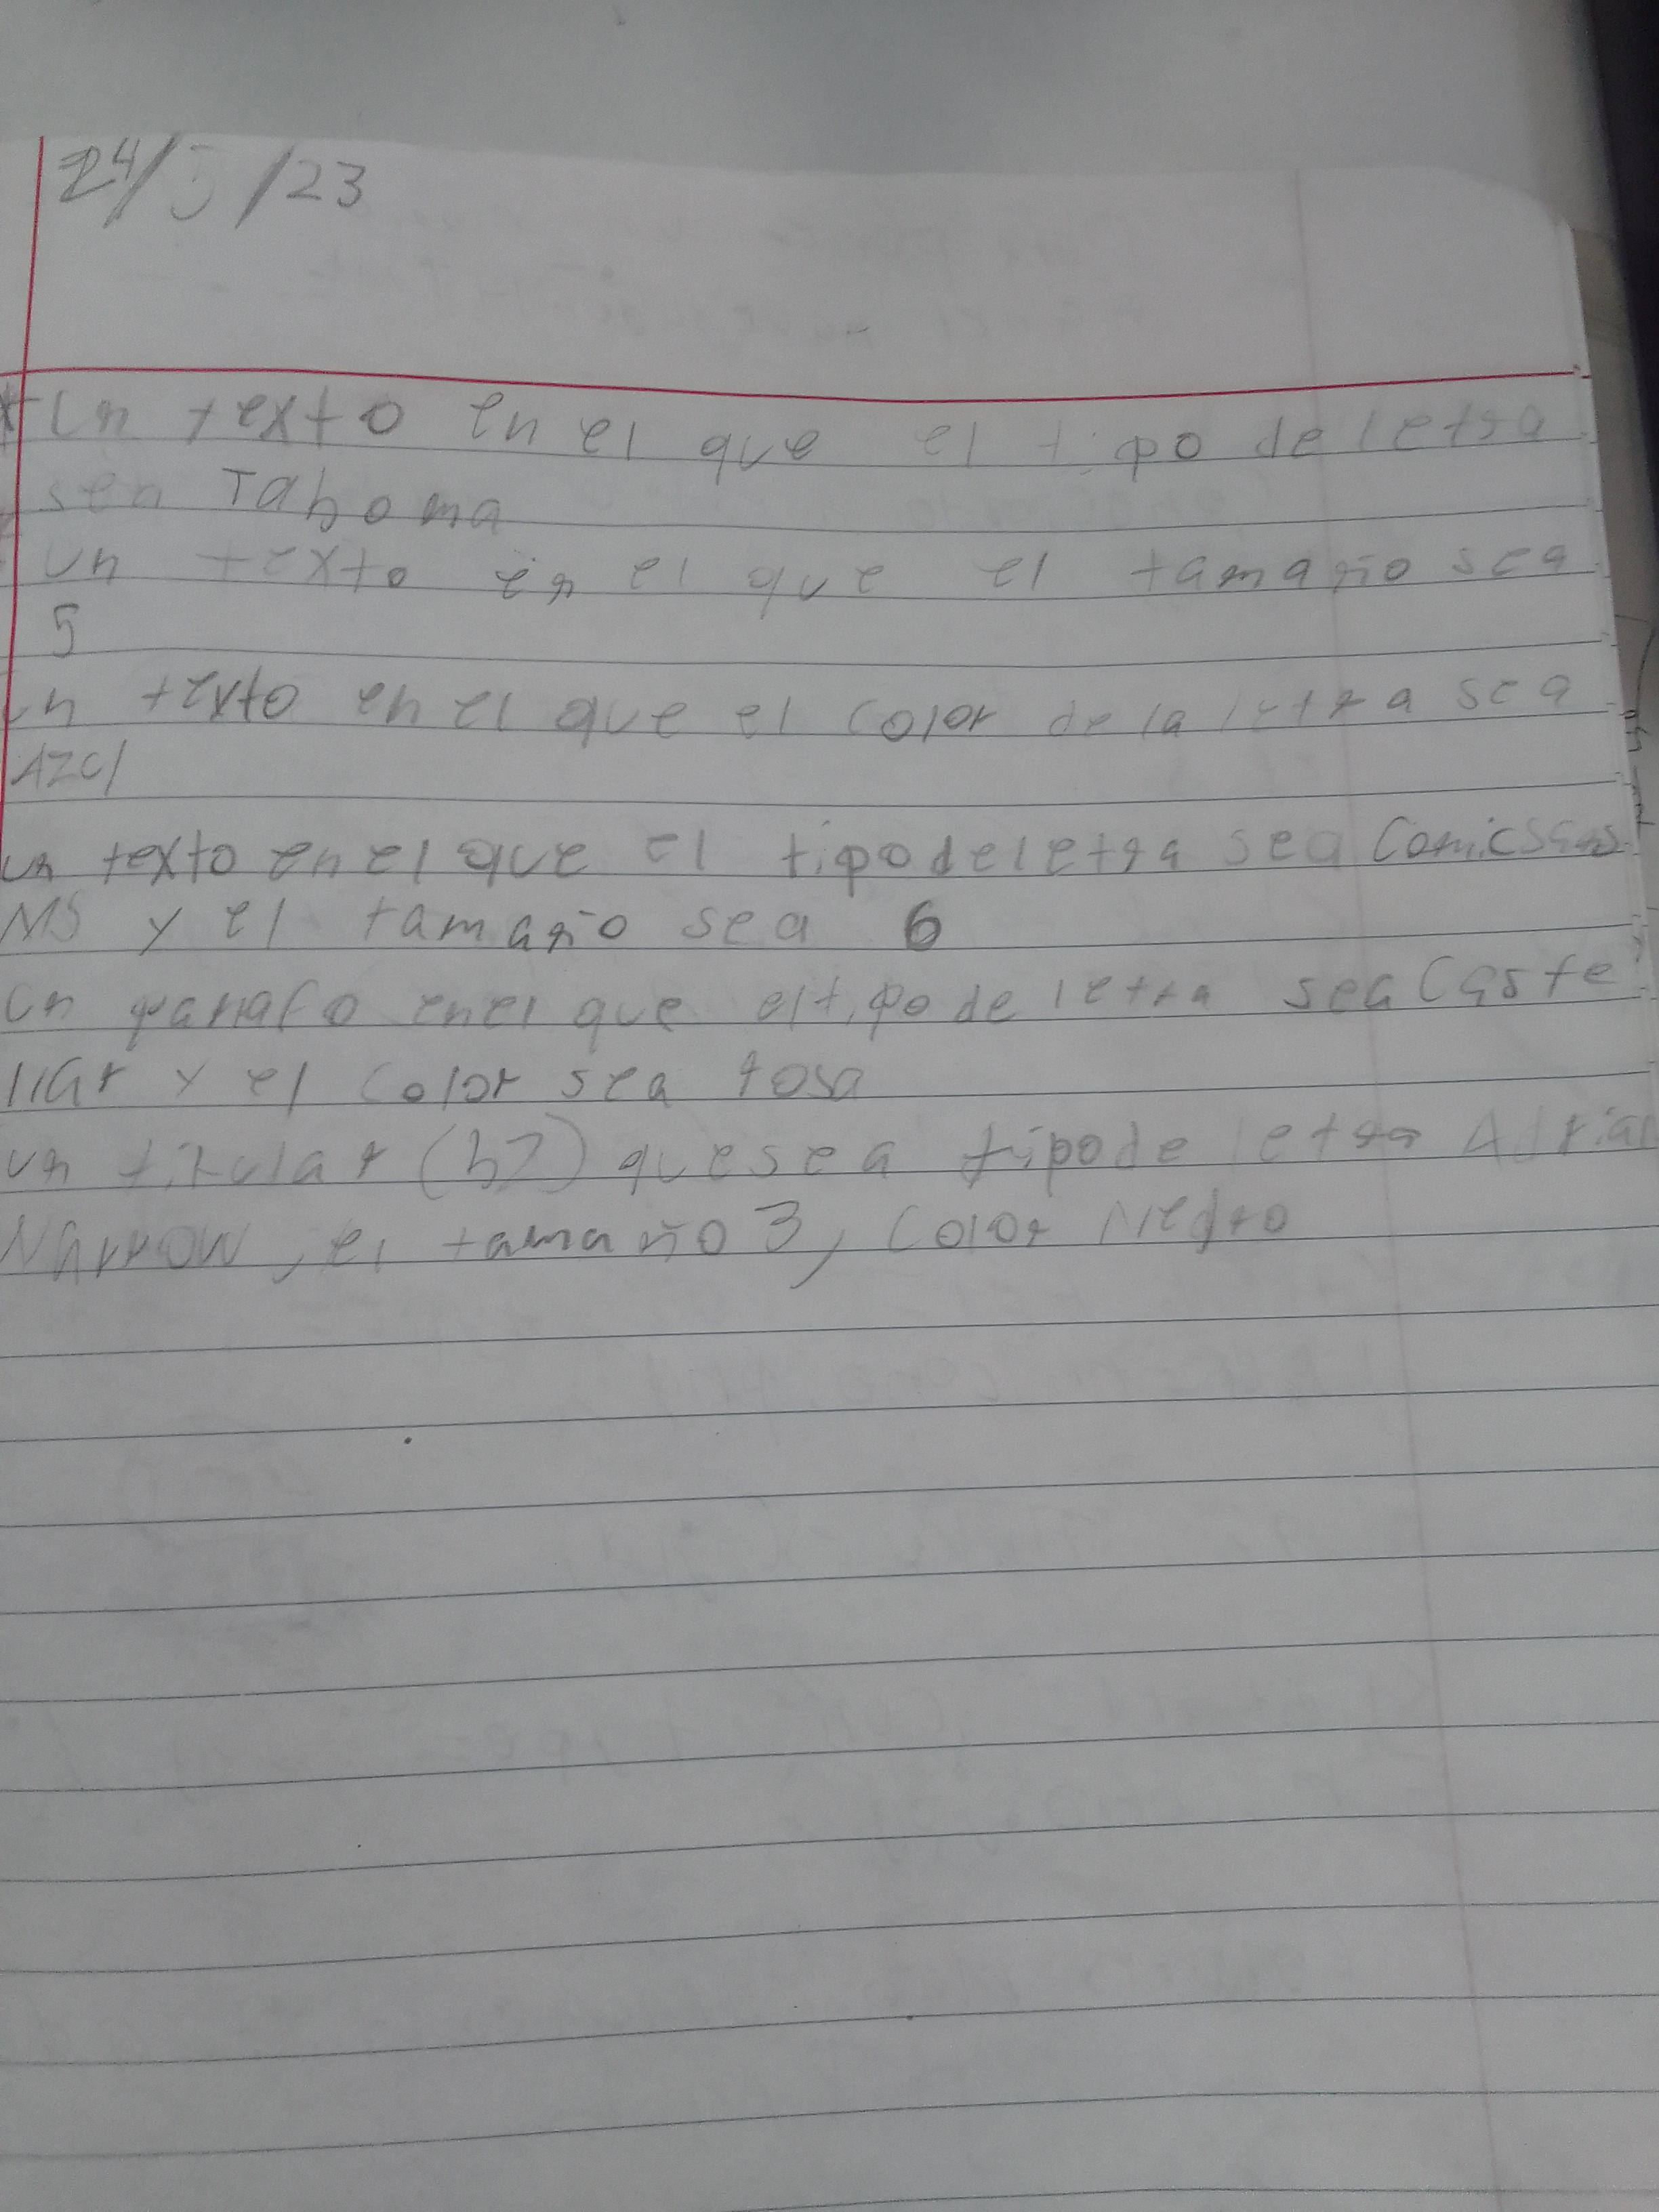 24/5/23
* Un texto en el que el tipo de letra
sea Tahoma
un texto en el que el tamaño sea
5
un texto en el que el color de la letra sea
AZul
un texto en el que el tipo de letra sea Comic Sans
MS y el tamaño sea 6
Un parrafo en el que el tipo de letra sea Caste
llar y el color sea rosa
un titular (h2) que sea tipo de letra Adrial
Narrow, el tamaño 3, Color Negro